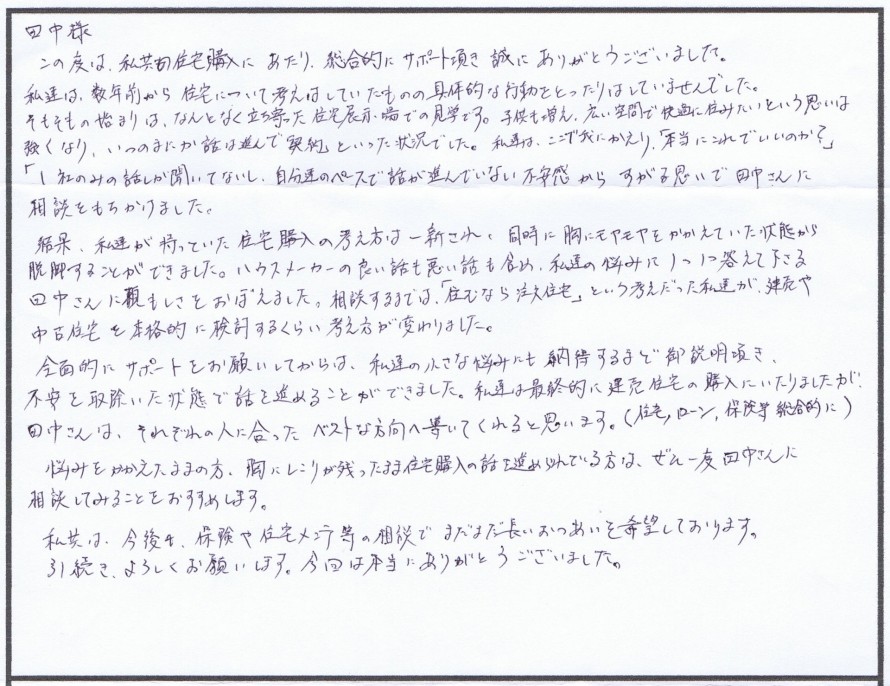 田中様
この度は、私共の住宅購入にあたり、総合的にサポート頂き誠にありがとうございました。
私達は、数年前から住宅について考えはしていたものの具体的な行動をとったりはしていませんでした。
そもそもの始まりは、なんとなく立ち寄った住宅展示場での見学です。子供も増え、広い空間で快適に住みたいという思いは
強くなり、いつのまにか話は進んで「契約」といった状況でした。私達は、ここで我にかえり、「本当にこれでいいのか?」
「1社のみの話しか聞いてないし、自分達のペースで話が進んでいない不安感からすがる思いで田中さんに
相談をもちかけました。
結果、私達が持っていた住宅購入の考え方は一新され、同時に胸にモヤモヤをかかえていた状態から
脱却することができました。ハウスメーカーの良い話も悪い話も含め、私達の悩みに1つ1つ答えて下さる
田中さんに頼もしさをおぼえました。相談するまでは、「住むなら注文住宅」という考えだった私達が、建売や
中古住宅を本格的に検討するくらい考え方が変わりました。
全面的にサポートをお願いしてからは、私達の小さな悩みにも納得するまで御説明頂き、
不安を取除いた状態で話を進めることができました。私達は最終的に建売住宅の購入にいたりましたが、
田中さんは、それぞれの人に合ったベストな方向へ導いてくれると思います。(住宅、ローン、保険等総合的に)
悩みをかかえたままの方、胸にしこりが残ったまま住宅購入の話を進められている方は、ぜひ一度田中さんに
相談してみることをおすすめします。
私共は、今後も、保険や住宅メンテ等の相談でまだまだ長いおつきあいを希望しております。
引続き、よろしくお願いします。今回は本当にありがとうございました。